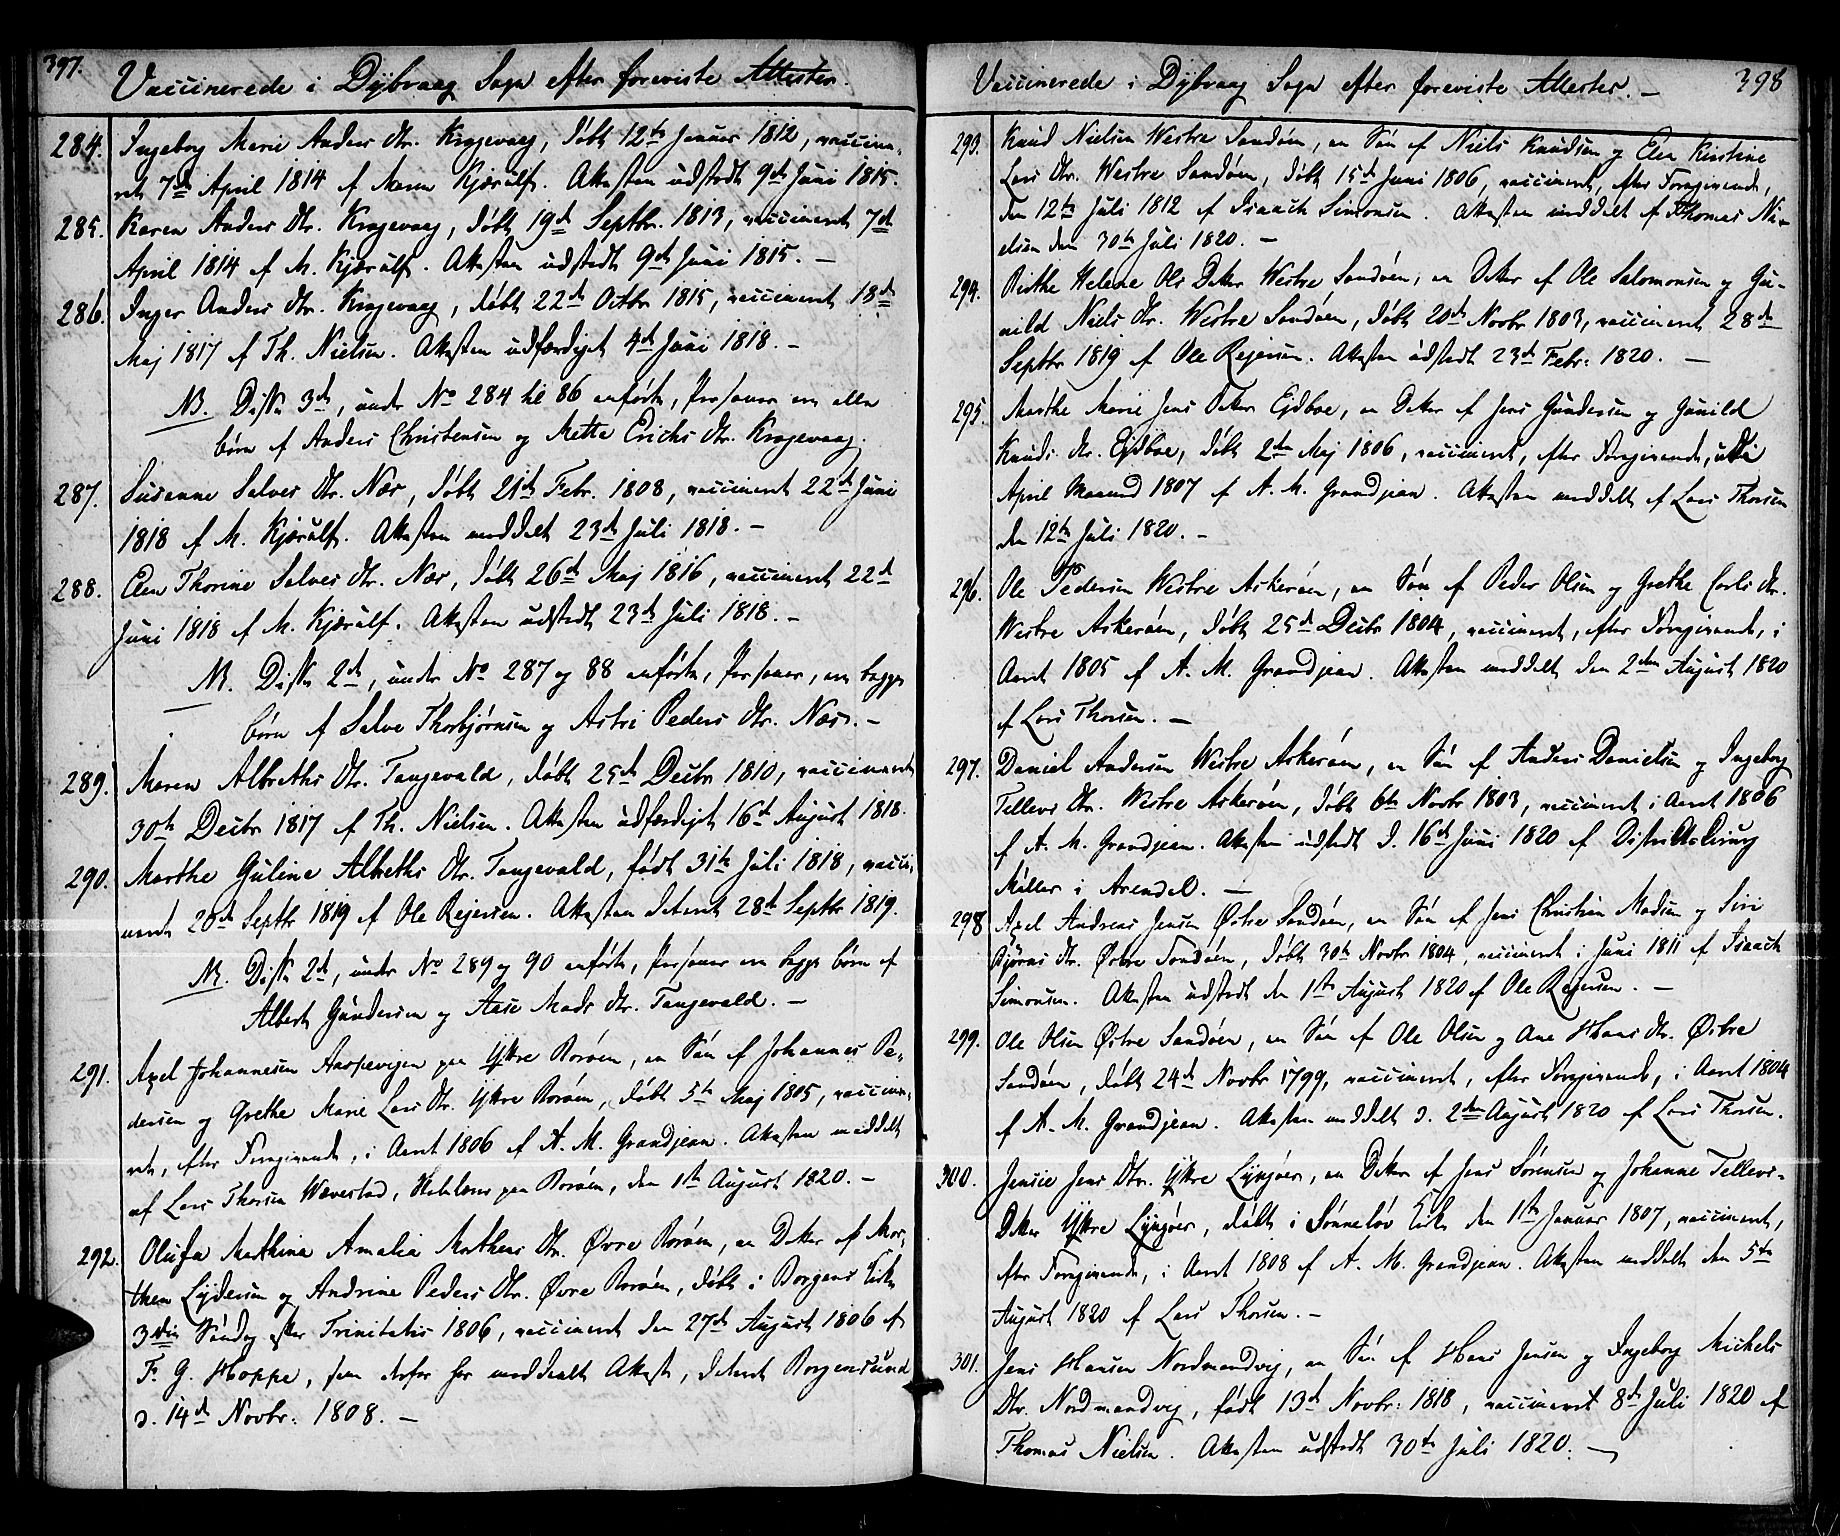 397.
Vaccinerede i Dybvaag Sogn efter foreviste Attester.
284. Ingeborg Marie Anders Dtr. Kragevaag, døbt 12te Januar 1812, vaccine-
ret 7de April 1814 af Maren Kjærulf. Attesten udstedt 9de Juni 1815.
285. Karen Anders Dtr. Kragevaag, døbt 19de Septbr. 1813, vaccineret 7de
April 1814 af M. Kjærulf. Attesten udstedt 9de Juni 1815. —
286. Inger Anders Dtr. Kragevaag, døbt 22de Octbr 1815, vaccineret 18de
Maj 1817 af Th. Nielsen. Attesten udfærdiget 4de Juni 1818. —
NB. Disse 3de, under No 284 til 86 anførte, Personer ere alle
børn af Anders Christensen og Mette Erichs Dtr. Kragevaag.
287. Susanne Salves Dtr. Næs, døbt 21de Febr. 1808, vaccineret 22de Juni
1818 af M. Kjærulf. Attesten meddelt 23de Juli 1818. —
288. Elen Thorine Salves Dtr. Næs, døbt 26de Maj 1816, vaccineret 22de
Juni 1818 af M. Kjærulf. Attesten udstedt 23de Juli 1818. —
NB. Disse 2de, under No 287 og 88 anførte, Personer, ere begge
børn af Salve Thorbjørnsen og Astri Peders Dtr. Næs. —
289. Maren Albreths Dtr. Tangevald, døbt 25de Decbr 1810, vaccineret
30te Decbr 1817 af Th. Nielsen. Attesten udfærdiget 16de August 1818.
290. Marthe Guline Albreths Dtr. Tangevald, født 31te Juli 1818, vacci-
neret 20de Septbr 1819 af Ole Rejersen. Attesten dateret 28de Septbr 1819.
NB. Disse 2de, under No 289 og 90 anførte, Personer ere begge børn af
Albert Gundersen og Aase Mads Dtr. Tangevald. —
291. Axel Johannesen Aaspevigen paa Yttre Borøen, en Søn af Johannes Pe-
dersen og Grethe Marie Lars Dtr. Yttre Borøen, døbt 5te Maj 1805, vaccine-
ret, efter Foregivende, i Aaret 1806 af A. M. Grandjean. Attesten meddelt
af Lars Thorsen Wævestad, paa Borøen, den 1ste August 1820. —
292. Olufa Mathina Amalia Mathens Dtr. Øvre Borøen, en Dotter af Mor-
then Lydersen og Andrine Peders Dtr. Øvre Borøen, døbt i Borgens Kirke
3die Søndag efter Trinitatis 1806, vaccineret den 27de August 1806 af
F. G. Hoppe, som derfor har meddeelt Attest, dateret Borgensund
d. 14de Novbr: 1808. —
Vaccinerede i Dybvaag Sogn efter foreviste Attester. — 398
293. Knud Nielsen Westre Sandøen, en Søn af Niels Knudsen og Elen Kirstine
Lars Dtr. Westre Sandøen, døbt 15de Juni 1806, vaccineret, efter Foregivende,
den 12te Juli 1812 af Isaach Simonsen. Attesten meddelt af Thomas Ni-
elsen den 30te Juli 1820. —
294. Birthe Helene Ols Dotter Westre Sandøen, en Dotter af Ole Salomonsen og Gu-
nild Niels Dtr. Westre Sandøen, døbt 20de Novbr 1803, vaccineret 28de
Septbr 1819 af Ole Rejersen. Attesten udstedt 23de Febr: 1820. —
295. Marthe Marie Jens Dotter Ejdboe, en Dotter af Jens Gundersen og Gunild
Knuds Dtr. Ejdboe, døbt 2den Maj 1806, vaccineret, efter Foregivende, udi
April Maaned 1807 af A. M. Grandjean. Attesten meddelt af Lars Thorsen
den 12te Juli 1820. —
296. Ole Pedersen Westre Askerøen, en Søn af Peder Olsen og Grethe Carls Dtr.
Westre Askerøen, døbt 25de Decbr 1804, vaccineret, efter Foregivende, i
Aaret 1805 af A. M. Grandjean. Attesten meddelt den 2den August 1820
af Lars Thorsen. —
297. Daniel Andersen Westre Askerøen, en Søn af Anders Danielsen og Ingeborg
Tellevs Dtr. Westre Askerøen, døbt 6te Novbr 1803, vaccineret i Aaret 1806
af A. M. Grandjean. Attesten udstedt d. 16de Juni 1820 af Districtschirurg
Møller i Arendal. —
298 Axel Andreas Jensen Østre Sandøen, en Søn af Jens Christian Madsen og Siri
Bjørns Dtr. Østre Sandøen, døbt 30te Novbr 1804, vaccineret i Juni 1811 af Isaach
Simonsen. Attesten udstedt den 1ste August 1820 af Ole Rejersen. —
299. Ole Olsen Østre Sandøen, en Søn af Ole Olsen og Ane Hans Dtr. Østre
Sandøen, døbt 24de Novbr 1799, vaccineret, efter Foregivende, i Aaret 1804
af A. M. Grandjean. Attesten meddelt d. 2den August 1820 af Lars Thorsen.
300. Jensie Jens Dtr. Yttre Lyngøer, en Dotter af Jens Sørensen og Johanne Tellevs-
Dotter Yttre Lyngøer, døbt i Sønneløv Kirke den 1ste Januar 1807, vaccineret,
efter Foregivende, i Aaret 1808 af A. M. Grandjean. Attesten meddelt den 5te
August 1820 af Lars Thorsen. —
301. Jens Hansen Nordmandvig, en Søn af Hans Jensen og Ingeborg Michels
Dtr. Nordmandvig, født 13de Novbr: 1818, vaccineret 8de Juli 1820 af
Thomas Nielsen. Attesten udstedt 30te Juli 1820. —